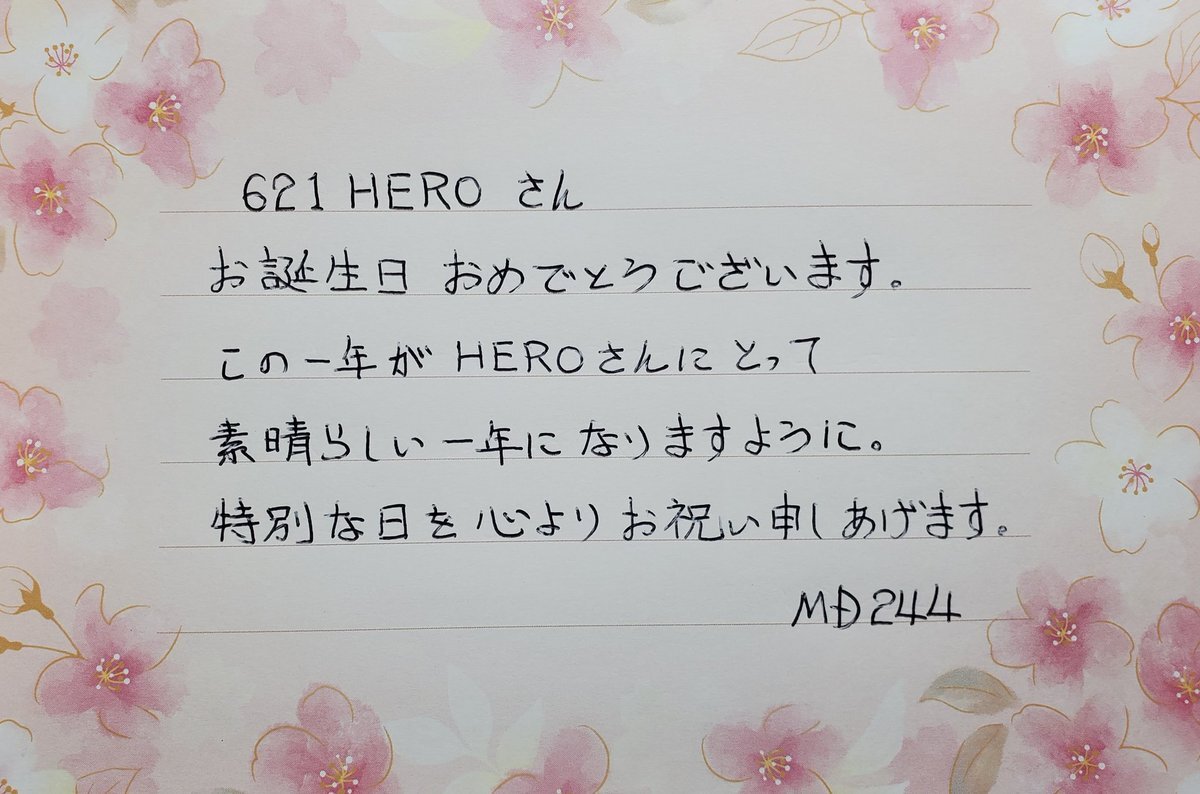 621 HERO さん
お誕生日 おめでとうございます。
この一年が HEROさんにとって
素晴らしい一年になりますように。
特別な日を心よりお祝い申しあげます。
MD244